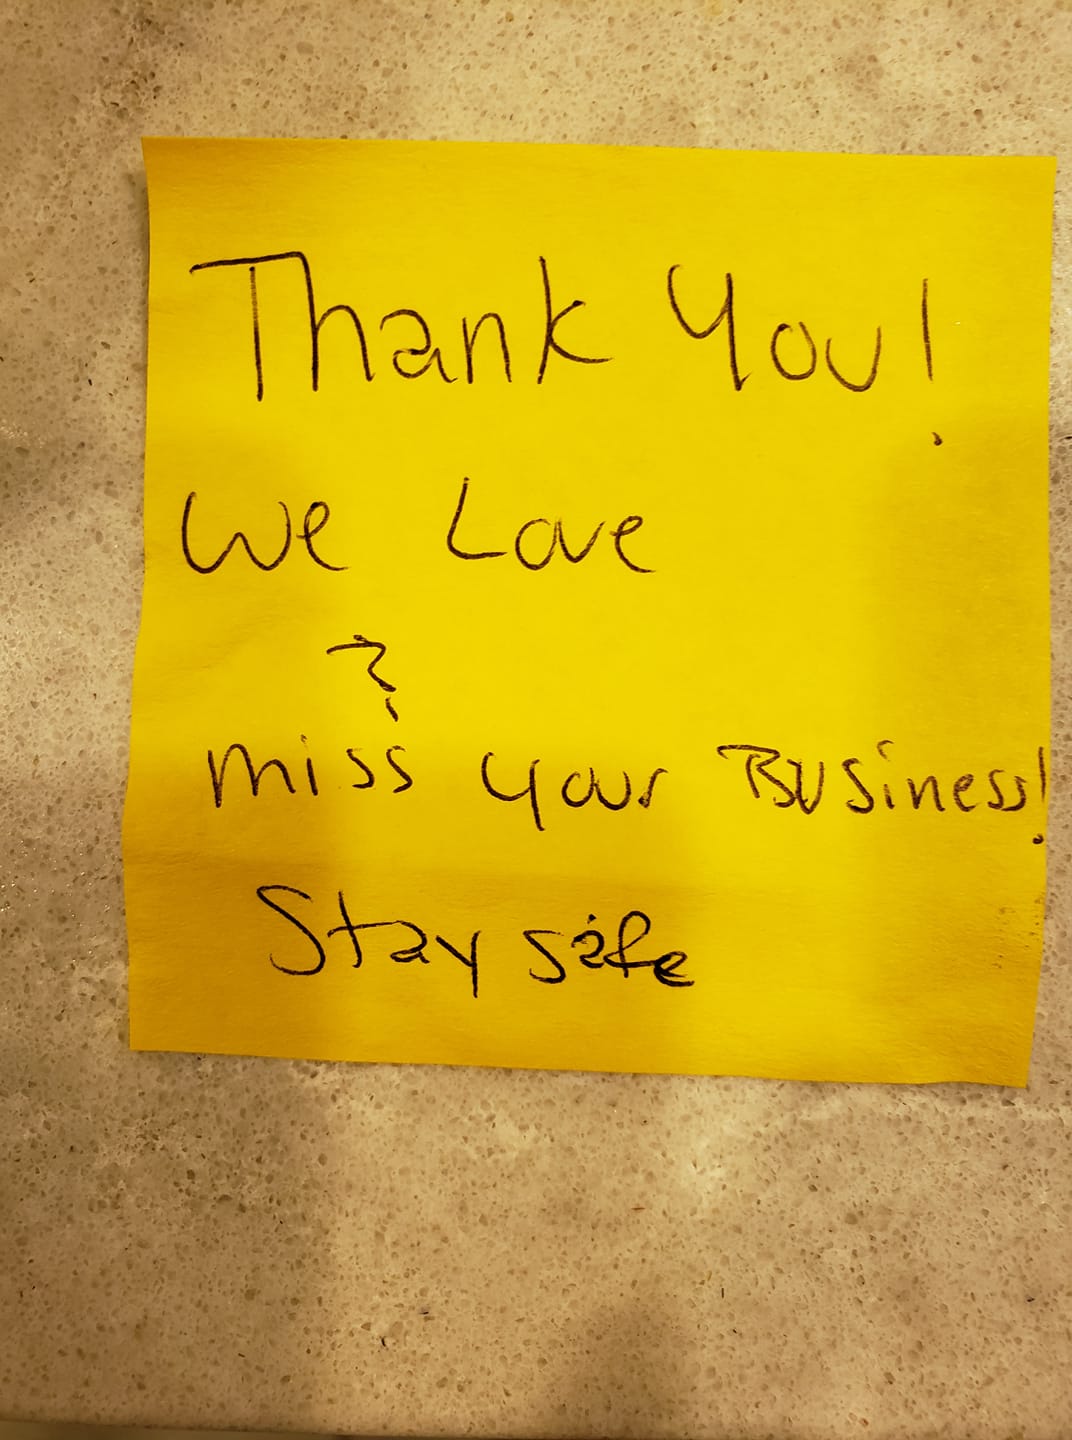 Thank You!
We Love
?
miss your Business!
Stay safe